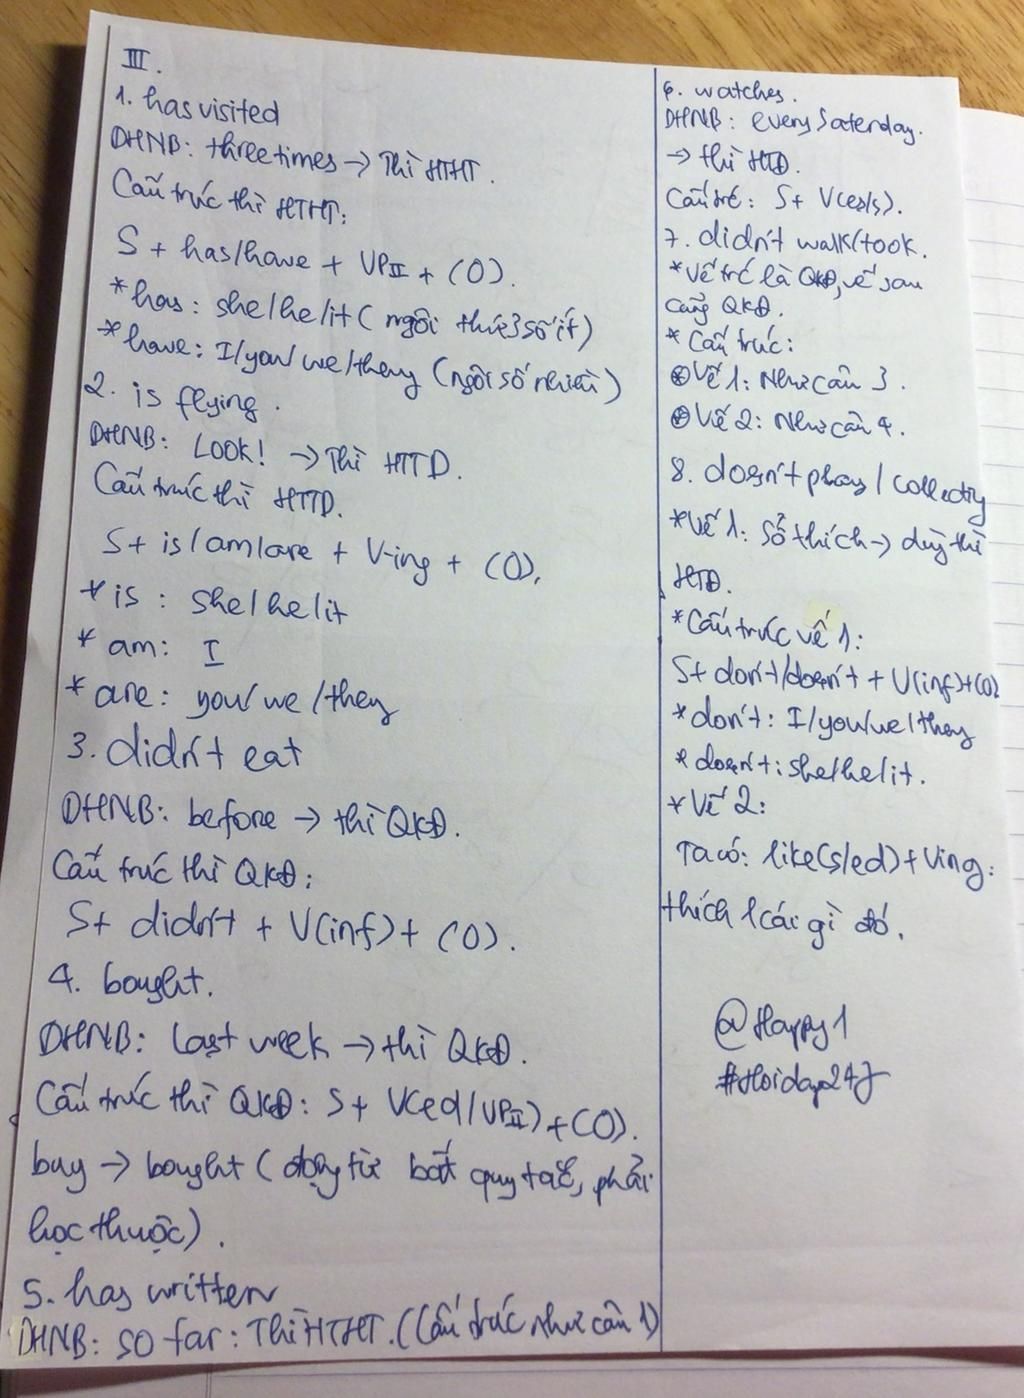 III.
1. has visited
DHNB: three times -> Thì HTHT.
Cấu trúc thì HTHT:
S + has/have + VPII + (O).
*has: she/he/it ( ngôi thứ 3 số ít)
*have: I/you/we/they (ngôi số nhiều)
2. is flying.
DHNB: Look! -> Thì HTTD.
Cấu trúc thì HTTD.
S+ is/am/are + V-ing + (O).
* is : she/he/it
* am: I
* are: you/we/they
3. didn't eat
DHNB: before -> thì QKĐ.
Cấu trúc thì QKĐ:
S+ didn't + V(inf)+ (O).
4. bought.
DHNB: Last week -> thì QKĐ.
Cấu trúc thì QKĐ: S+ V(ed/VPII)+(O).
buy -> bought ( động từ bất quy tắc, phải
học thuộc).
5. has written
DHNB: so far: Thì HTHT. (Cấu trúc như câu 1)
6. watches.
DHNB: every Saterday.
-> thì HTĐ.
Cấu trc: S+ V(es/s).
7. didn't walk/took.
*Vế trc là QKĐ, vế sau
cũng QKĐ.
* Cấu trúc:
⊕Vế 1: Như câu 3.
⊕Vế 2: Như câu 4.
8. doesn't play / collecting
*Vế 1: Sở thích -> dùng thì
HTĐ.
*Cấu trúc vế 1:
S+ don't/doesn't + V(inf)+(O)
*don't: I/you/we/they
* doesn't: she/he/it.
*Vế 2:
Ta có: like(s/ed)+ Ving:
thích 1 cái gì đó.
@Happy1
#Hoidap247